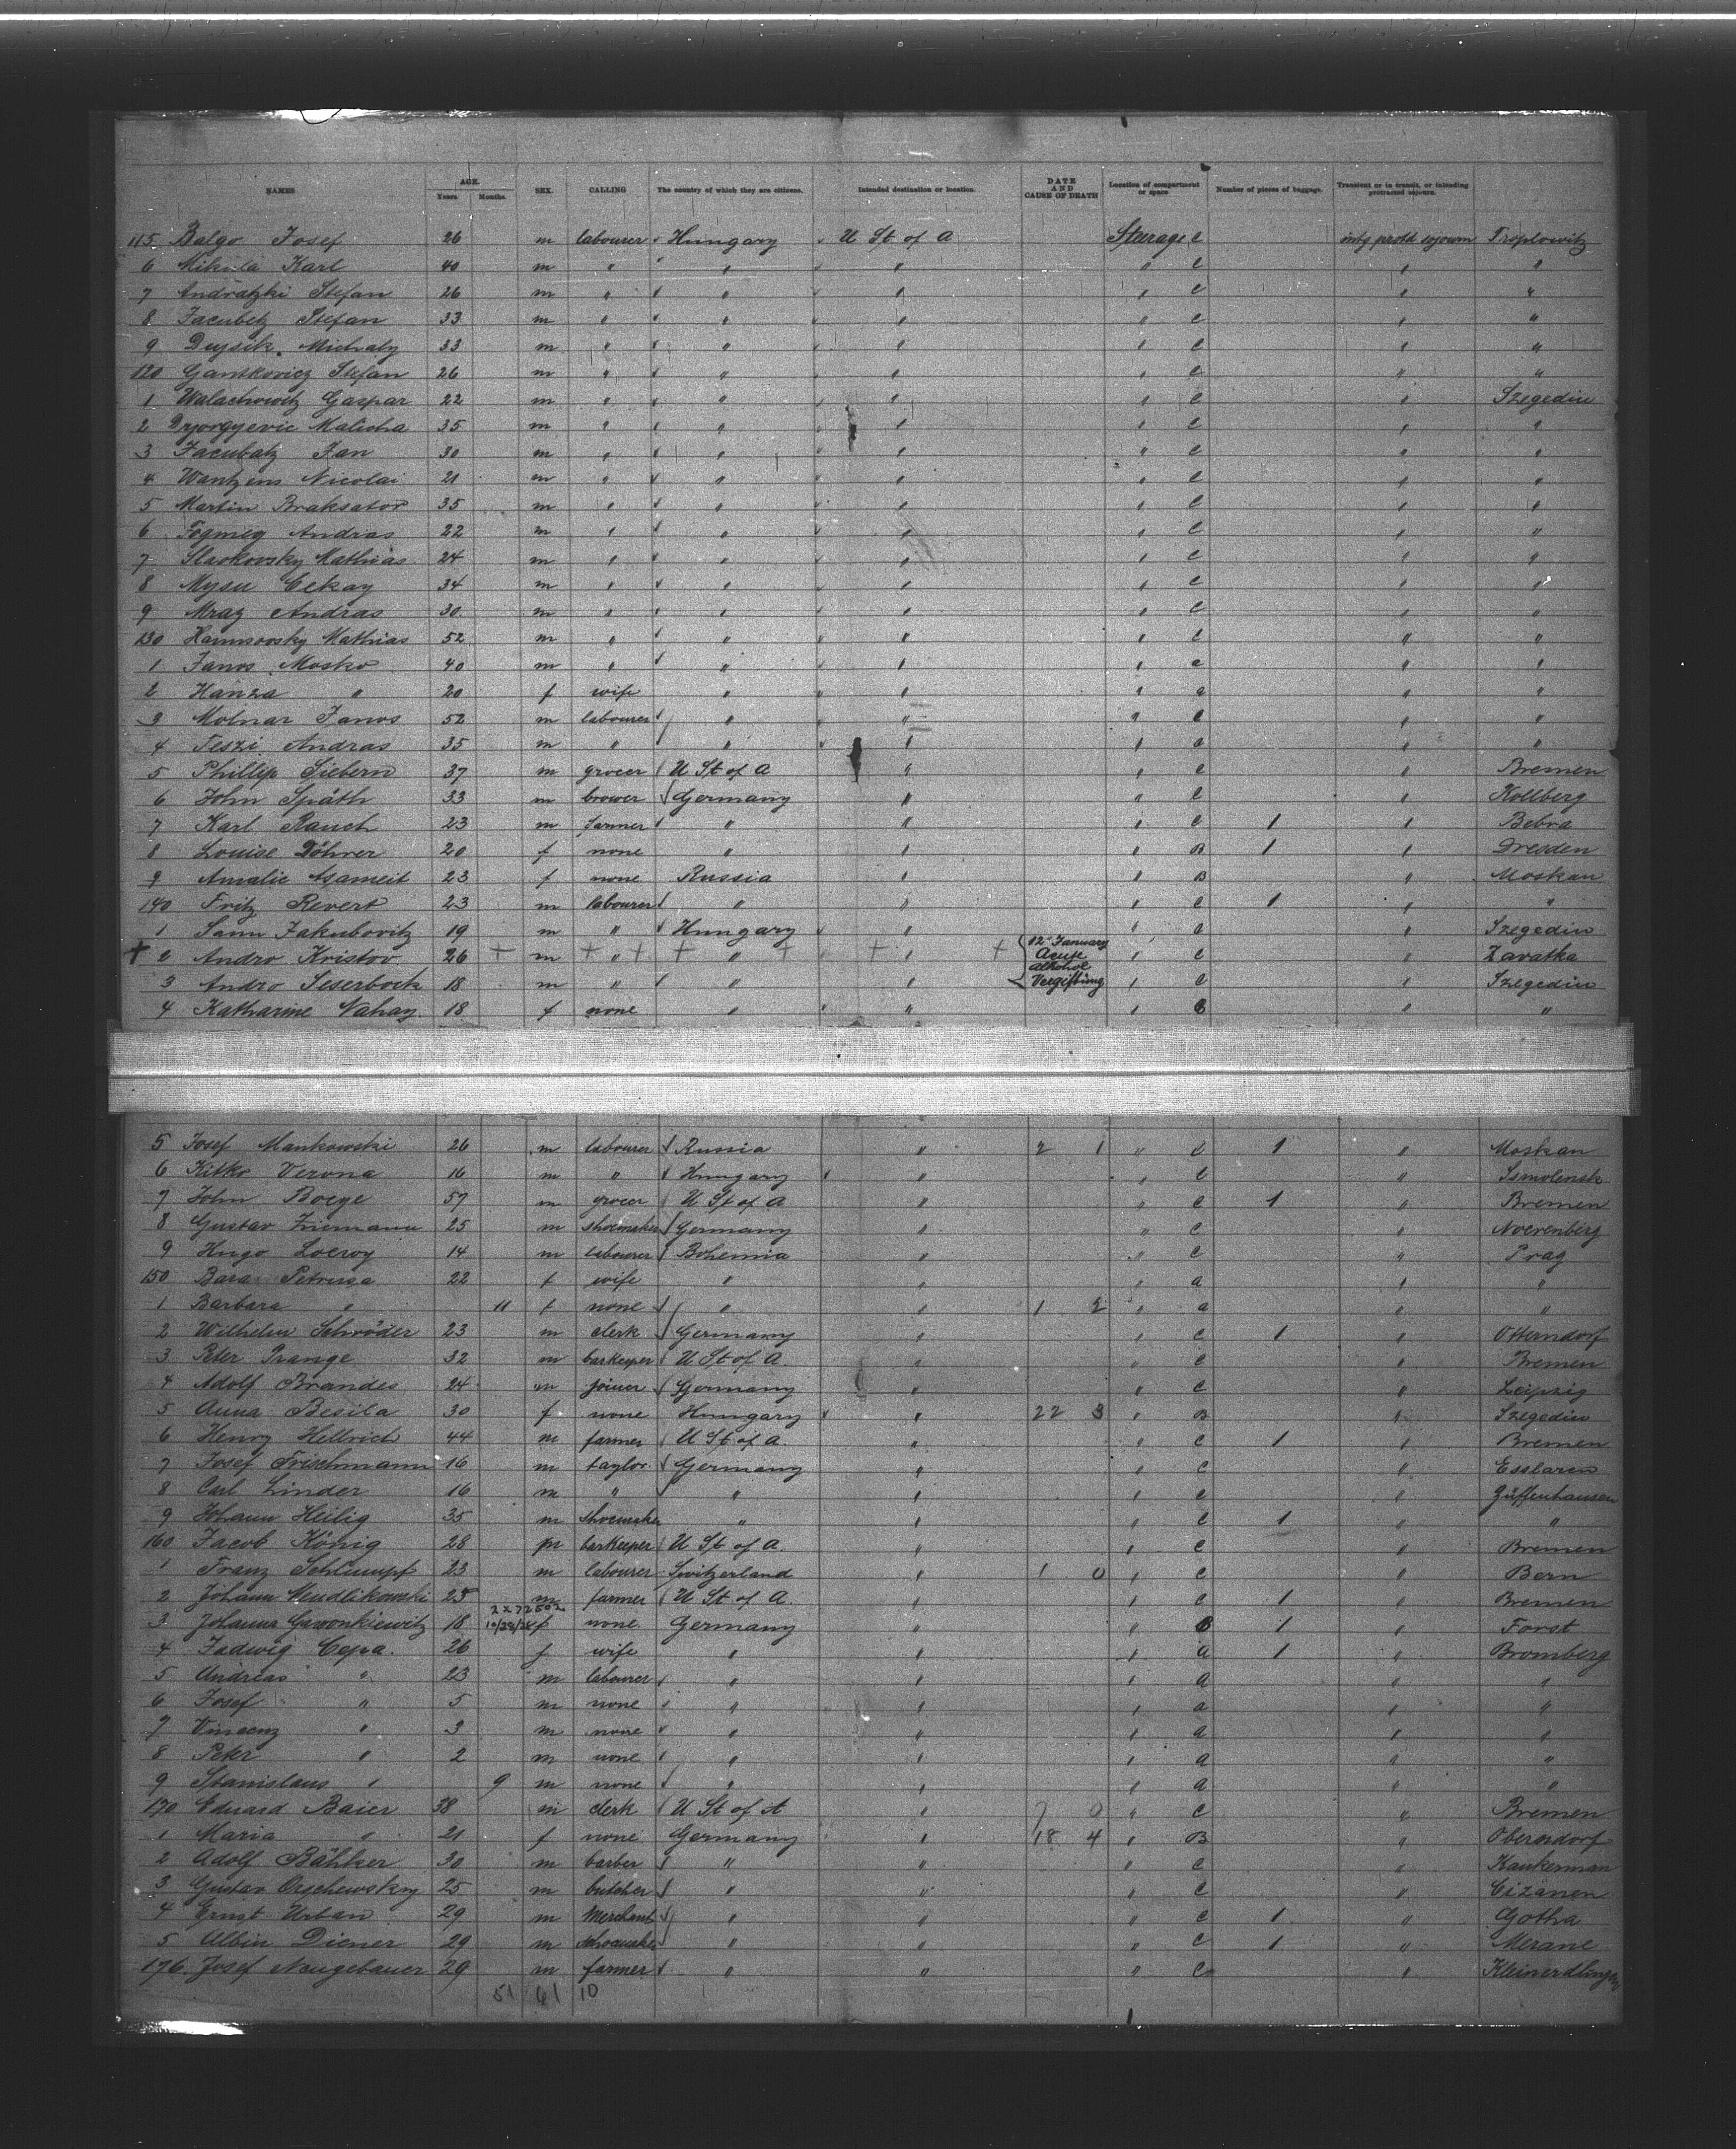 NAMES AGE. Years Months. SEX. CALLING The country of which they are citizens. Intended destination or location. DATE AND CAUSE OF DEATH Location of compartment or space Number of pieces of baggage. Transient or in transit, or intending protracted sojourn.
115 Balgo Josef 26 m labourer Hungary U St of A Steerage C intg protd sojourn Triplowitz
6 Mikula Karl 40 m " " " " C " "
7 Andratzki Stefan 26 m " " " " C " "
8 Jacubetz Stefan 33 m " " " " C " "
9 Dujsik Michaly 33 m " " " " C " "
120 Gantkovicz Stefan 26 m " " " " C " "
1 Walachowitz Gaspar 22 m " " " " C " Szegedin
2 Malicha 35 m " " " " C " "
3 Jacubatz Jan 30 m " " " " C " "
4 Wantzens Nicolai 21 m " " " " C " "
5 Martin Braksator 35 m " " " " C " "
6 Andras 22 m " " " " C " "
7 Slavkovsky Mathias 24 m " " " " C " "
8 Mysu Cekay 34 m " " " " C " "
9 Mraz Andras 30 m " " " " C " "
130 Mathias 52 m " " " " C " "
1 Janos Mosko 40 m " " " " a " "
2 Hanza " 20 f wife " " " a " "
3 Molnar Janos 52 m labourer " " " C " "
4 Teszi Andras 35 m " " " " a " "
5 Phillip Siebern 37 m grocer U St of A " " C " Bremen
6 John Späth 33 m brower Germany " " C " Kollberg
7 Karl Rauch 23 m farmer " " " C 1 " Bebra
8 Louise Döhrer 20 f none " " " B 1 " Dresden
9 Amalie Asameit 23 f none Russia " " B " Moskau
140 Fritz Revert 23 m labourer " " " C 1 " "
1 Sam Jakubovitz 19 m " Hungary " " a " Szegedin
+ 2 Andro Kristov 26 + m + " + + " + + " + 12 January Acute alkohol Vergiftung " C " Zavatka
3 Andro Seserbock 18 m " " " " C " Szegedin
4 Katharine Vahay 18 f none " " " B " "
5 Josef Mankowski 26 m labourer Russia " 2 1 " C 1 " Moskau
6 Kitko Verona 16 m " Hungary " " C " Ssmolensk
7 John Boege 57 m grocer U St of A " " C 1 " Bremen
8 Gustav Ziemann 25 m shoemaker Germany " " C " Noerenberg
9 Hugo Loewy 14 m labourer Bohemia " " C " Prag
150 Bara Petrusa 22 f wife " " " a " "
1 Barbara " 11 f none " " 1 2 " a " "
2 Wilhelm Schröder 23 m clerk Germany " " C 1 " Otterndorf
3 Peter Prange 32 m barkeeper U St of A. " " C " Bremen
4 Adolf Brandes 24 m joiner Germany " " C " Leipzig
5 Anna Besila 30 f none Hungary " 22 3 " B " Szegedin
6 Henry Hellrich 44 m farmer U St of A. " " C 1 " Bremen
7 Josef Frischmann 16 m taylor Germany " " C " Esslaren
8 Carl Linder 16 m " " " " C " Züffenhausen
9 Johann Heilig 35 m shoemaker " " " C 1 " "
160 Jacob König 28 m barkeeper U St of A. " " C " Bremen
1 Franz Schlumpf 23 m labourer Switzerland " 1 0 " C " Bern
2 Johann Mendlikowski 25 m farmer U St of A. " " C 1 " Bremen
2x72502
3 Johanna Gawonkiewitz 18 10/28/28 f none Germany " " B 1 " Forst
4 Jadwig Cepa. 26 f wife " " " a 1 " Bromberg
5 Andreas " 23 m labourer " " " a " "
6 Josef " 5 m none " " " a " "
7 Vincenz " 3 m none " " " a " "
8 Peter " 2 m none " " " a " "
9 Stanislaus " 9 m none " " " a " "
170 Eduard Baier 38 m clerk U St of A " 7 0 " C " Bremen
1 Maria " 21 f none Germany " 18 4 " B " Oberndorf
2 Adolf Bähker 30 m barber " " " C " Kaukerman
3 Gustav Orgchewsky 25 m butcher " " " C " Cizanen
4 Ernst Urban 29 m Merchant " " " C 1 " Gotha
5 Albin Diener 29 m shoemaker " " " C 1 " Merane
176. Josef Neugebauer 29 m farmer " " " C " Kleinerdlingen
51 61 10